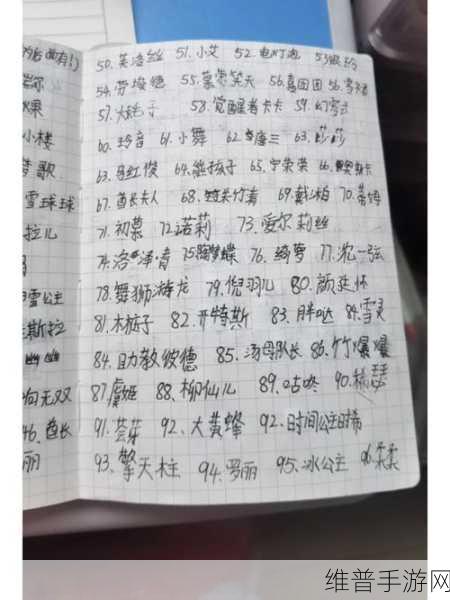 果
小楼
歌
雪球球
拉儿
雪公主
斯拉
幽幽
向无双
46、酋长
丽
50、芙洛丝 51、小艾 52、电灯泡 53、
54、劳埃德 55、慕容笑天 56、喜团团 56、
57、大 子 58、觉醒者卡卡 59、幻
60、玲音 61、小舞 62、唐三 63、莎莎
63、马红俊 64、熊孩子 65、宁荣荣 66、奥斯卡
67、酋长夫人 68、朱竹青 69、戴沐柏 70、蒂娜
71、初慕 72、诺莉 73、爱尔莉丝
74、洛 泽音 75、陶梦蝶 76、绮萝 77、沈一弦
78、舞狮游龙 79、倪羽儿 80、颜廷怀
81、木桩子 82、开特斯 83、胖哒 84、雪灵
84、助教彼德 85、汤母队长 86、竹爆爆
87、虞姬 88、柳仙儿 89、咕咚 90、橘瑟瑟
91、芸芽 92、大黄蜂 92、时间公主时希
93、擎天柱 94、罗丽 95、冰公主 96、柔柔
维普手游网